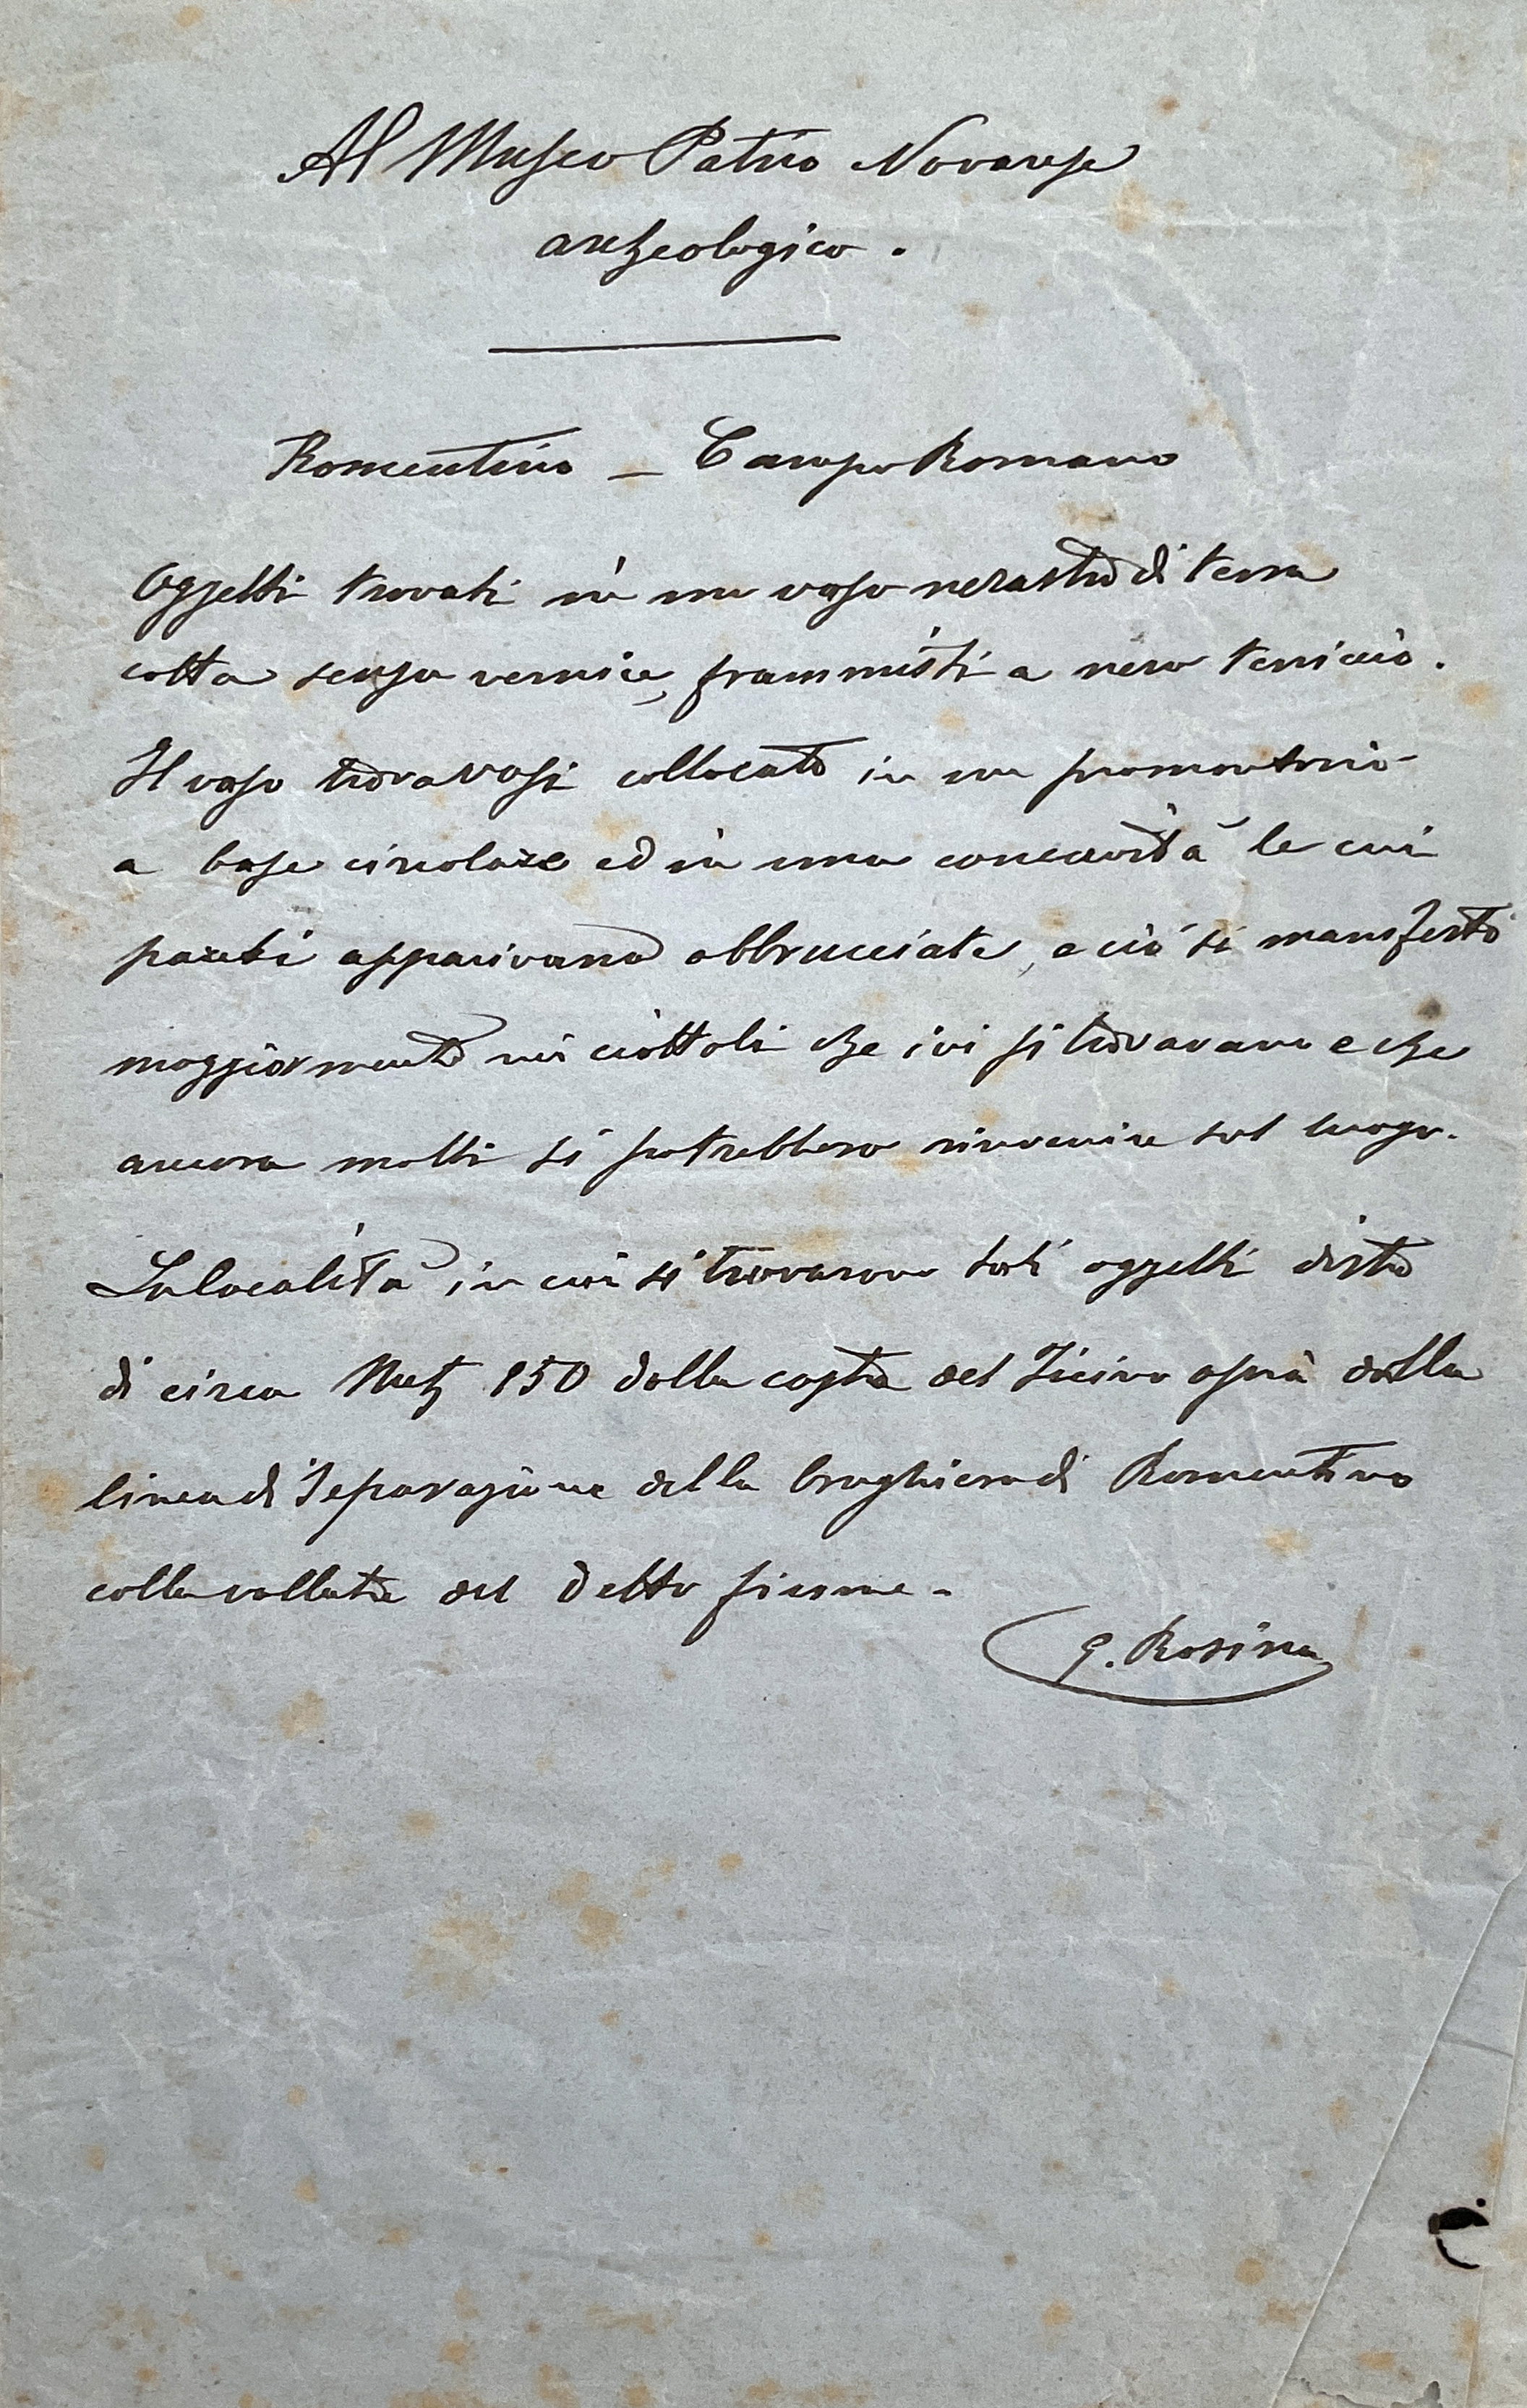 Al Museo Patrio Novarese
archeologico.
Romentino – Campo Romano
Oggetti trovati in un vaso nerastro di terra
cotta senza vernice, frammisti a nero terriccio.
Il vaso trovavasi collocato in un promontorio
a base circolare ed in una concavità le cui
pareti apparivano abbrucciate, e ciò si manifestò
maggiormente nei ciottoli che ivi si trovavano e che
ancora molti si potrebbero rinvenire sul luogo.
La località in cui si trovarono tali oggetti dista
di circa Met. 150 dalla costa del Ticino ossia dalla
linea di separazione della brughiera di Romentino
colla vallata del detto fiume.
G. Rosina